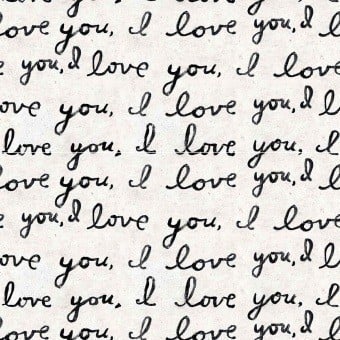 love you, I love you, I
you, I love you, I love
love you, I love you, I l
love you, I love you, I
love you, I love you, I l
you, I love you, I love
love you, I love you, I l
love you, I love you, I
love you, I love you, I l